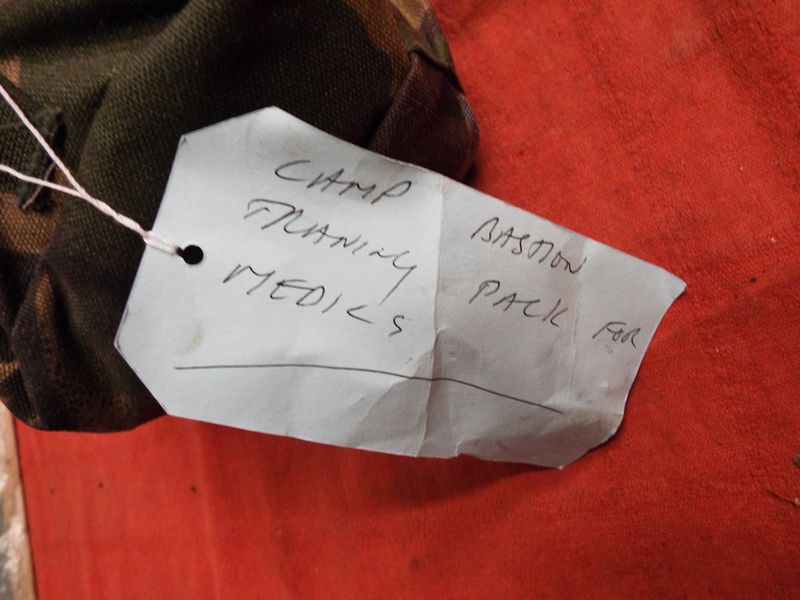 CAMP BASTION
TRANING PACK FOR
MEDICS